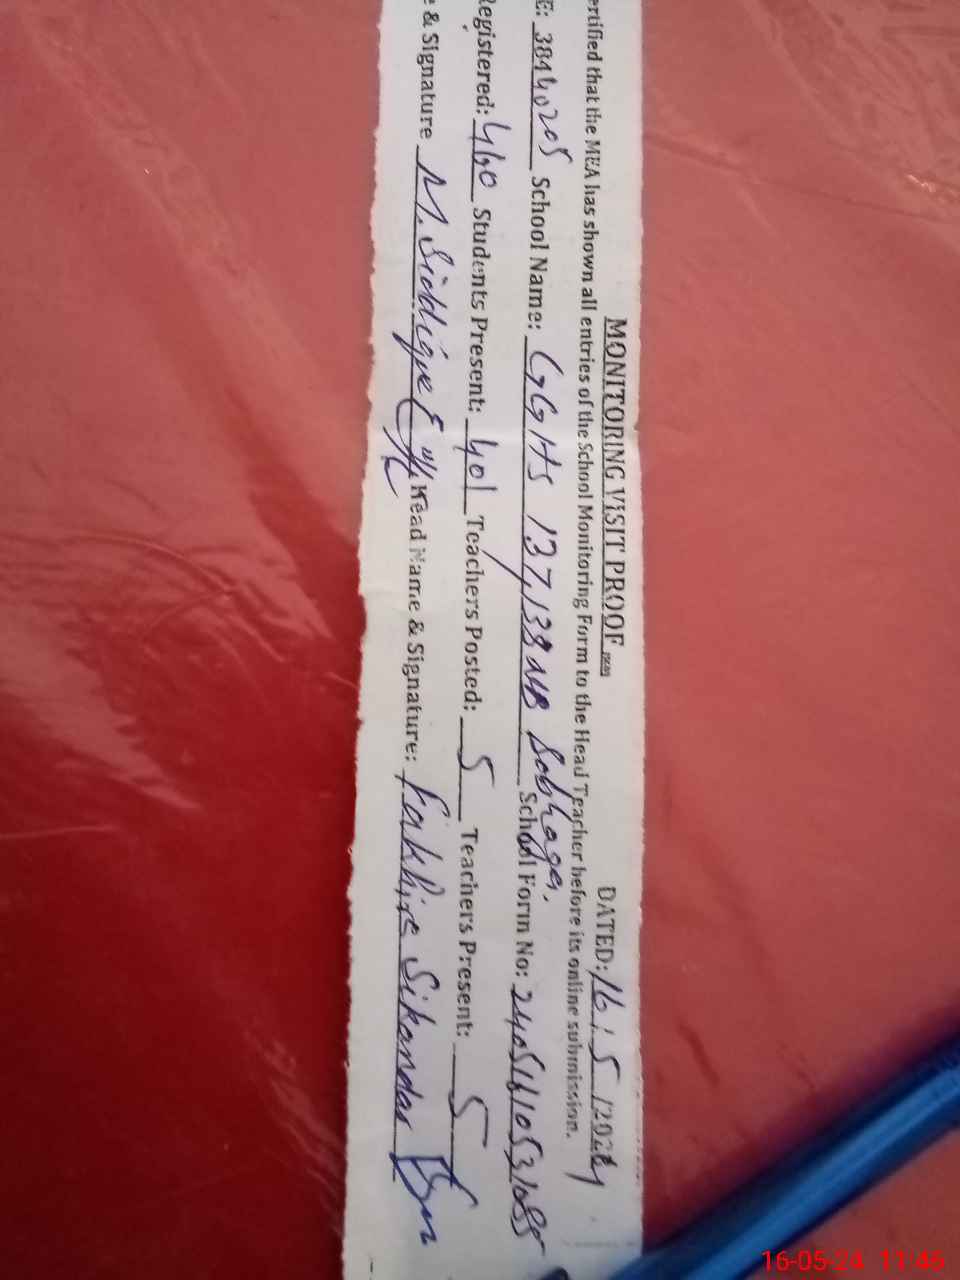 MONITORING VISIT PROOF DATED: 16 / 5 /2024
ertified that the MEA has shown all entries of the School Monitoring Form to the Head Teacher before its online submission.
E: 38140205 School Name: GGHS 137,138 School Form No:
egistered: 460 Students Present: 401 Teachers Posted: 5 Teachers Present: 5
e & Signature M. Siddique Head Name & Signature: Sikandar
16-05-24 11:45